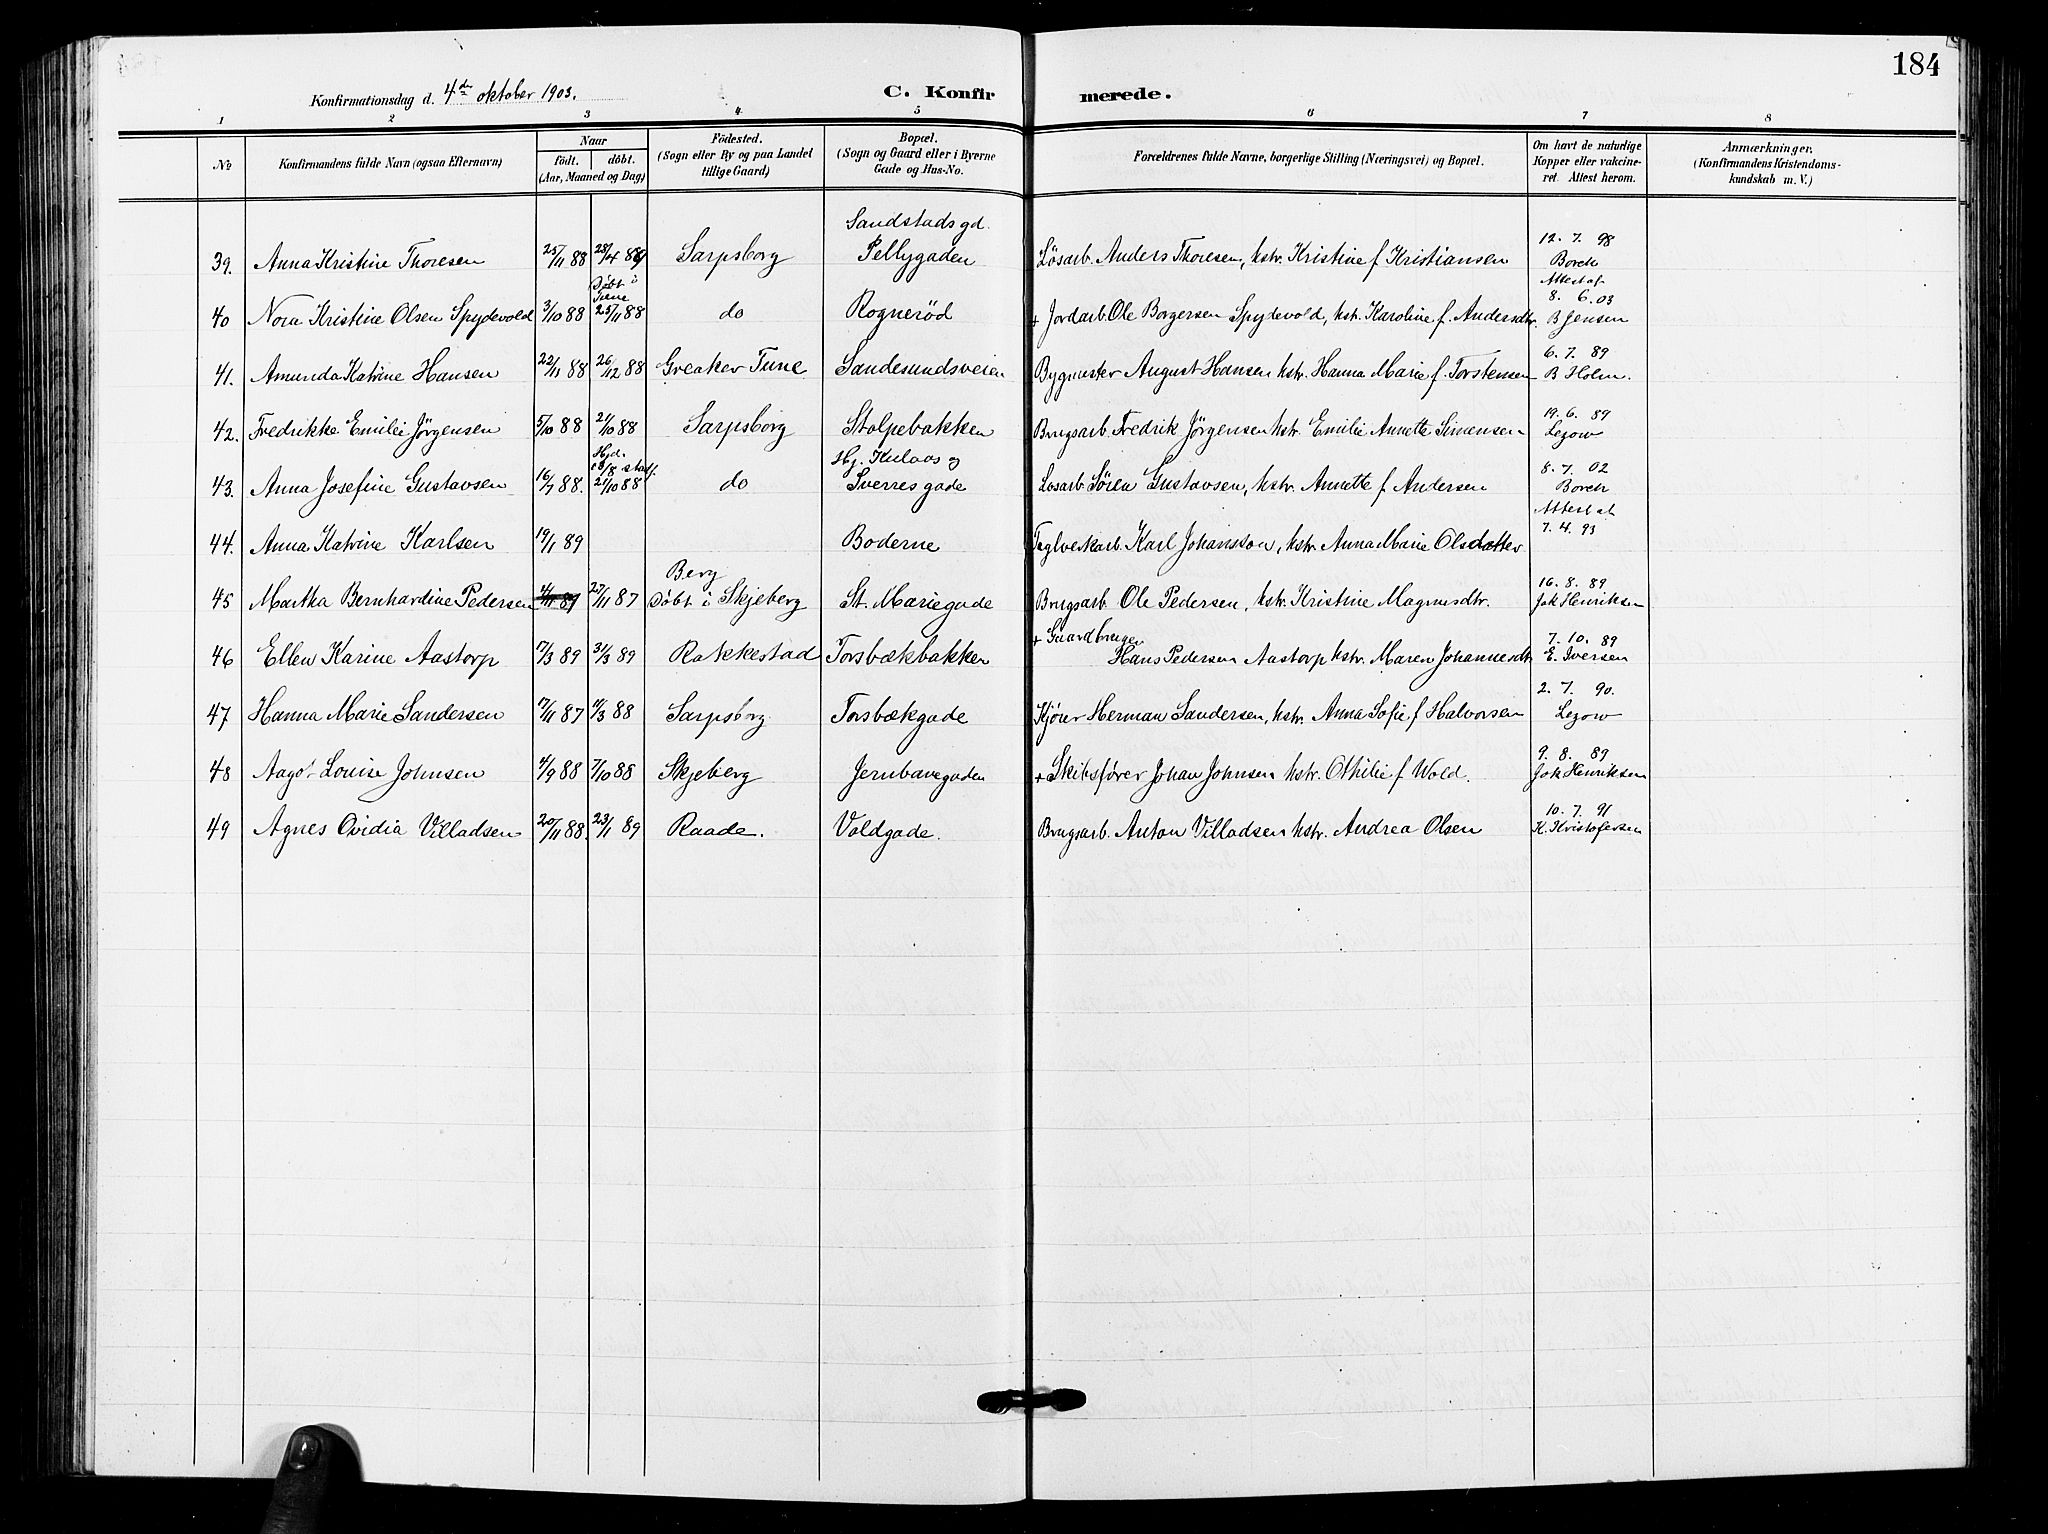 184
Konfirmationsdag d. 4de oktober 1903.
C. Konfirmerede.
1 2 3 4 5 6 7 8
No
Konfirmandens fulde Navn (ogsaa Efternavn)
Naar
født. døbt.
(Aar, Maaned og Dag)
Födested.
(Sogn eller By og paa Landet
tillige Gaard)
Bopæl.
(Sogn og Gaard eller i Byerne
Gade og Hus-No.
Forældrenes fulde Navne, borgerlige Stilling (Næringsvei) og Bopæl.
Om havt de naturlige
Kopper eller vakcine-
ret. Attest herom.
Anmærkninger.
(Konfirmandens Kristendoms-
kundskab m. V.)
Sandstads gd.
39. Anna Kristine Thoresen 25/11 88 28/4 89 Sarpsborg Pellygaden Løsarb. Anders Thoresen, hstr. Kristine f Kristiansen 12. 7. 98 Borch
Døbt i Tune
Attest af
40 Nora Kristine Olsen Spydevold 3/10 88 25/11 88 do Rognerød + Jordarb. Ole Borgersen Spydevold, hstr. Karoline f. Andersdtr. 8. 6. 03 B Jensen
41. Amunda Katrine Hansen 22/11 88 26/12 88 Greaker Tune Sandesundsveien Bygmester August Hansen hstr. Hanna Marie f. Torstensen 6. 7. 89 B Holm.
42. Fredrikke Emilie Jørgensen 5/10 88 21/10 88 Sarpsborg Stolpebakken Brugsarb. Fredrik Jørgensen hstr. Emilie Annette Simensen 19. 6. 89 Legow
Hjd. 18/8 stadf.
Hj. Kulaas og
43. Anna Josefine Gustavsen 16/7 88. 21/10 88 do Sverres gade Løsarb. Søren Gustavsen, hstr. Annette f. Andersen 8. 7. 02 Borch
Attest af
44. Anna Katrine Karlsen 19/1 89 Boderne Teglverkarb. Karl Johansson, hstr. Anna Marie Olsdatter 7. 4. 93
Berg
45 Martha Bernhardine Pedersen 4/11 87 27/11 87 Døbt i Skjeberg St. Mariegade Brugsarb. Ole Pedersen, hstr. Kristine Magnusdtr. 16. 8. 89 Joh Henriksen
+ Gaardbruger
46 Ellen Karine Aastorp 17/3 89 31/3 89 Rakkestad Torsbækbakken Hans Pedersen Aastorp hstr. Maren Johannesdtr 7. 10. 89 E. Iversen
47 Hanna Marie Sandersen 17/11 87 11/3 88 Sarpsborg Torsbækgade Kjører Herman Sandersen, hstr. Anna Sofie f Halvorsen 2. 7. 90. Legow
48 Aagot Louise Johnsen 4/9 88 7/10 88 Skjeberg Jernbanegaden + Skibsfører Johan Johnsen hstr. Othilie f Wold. 9. 8. 89 Joh Henriksen
49 Agnes Ovidia Villadsen 20/11 88. 23/1 89 Raade. Voldgade. Brugsarb. Anton Villadsen hstr. Andrea Olsen 10. 7. 91 K. Kristofersen